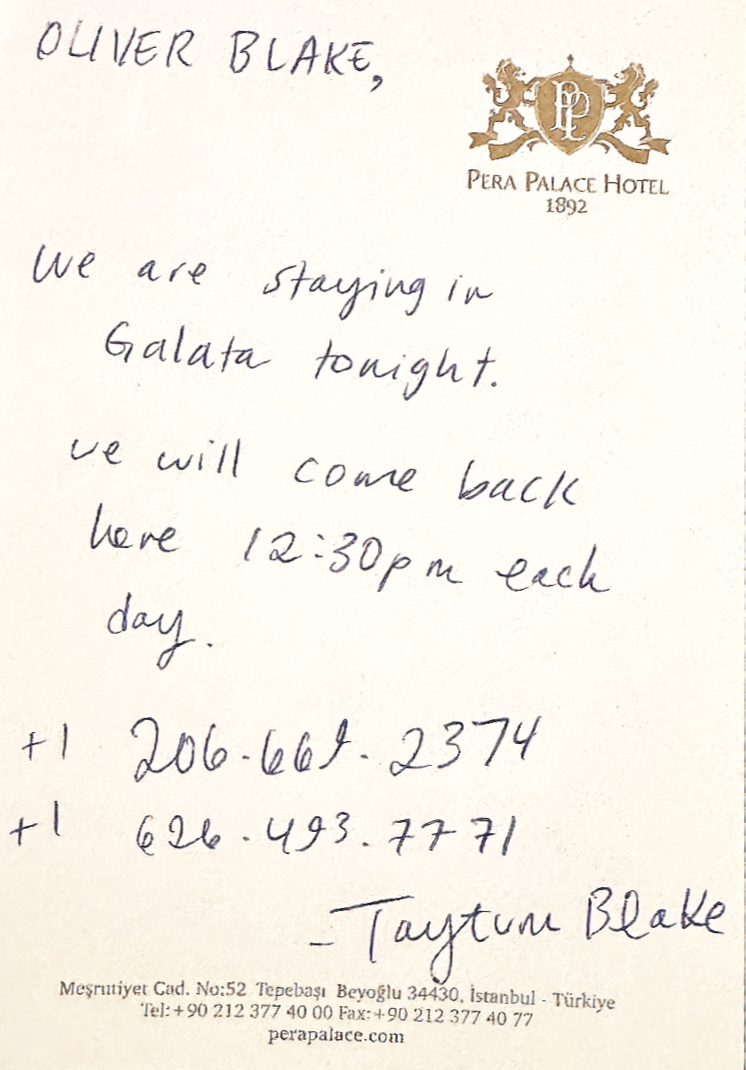 OLIVER BLAKE,
PP
PERA PALACE HOTEL
1892
We are staying in
Galata tonight.
we will come back
here 12:30pm each
day.
+1 206.669.2374
+1 626.493.7771
- Taytum Blake
Meşrutiyet Cad. No:52 Tepebaşı Beyoğlu 34430, İstanbul - Türkiye
Tel: +90 212 377 40 00 Fax: +90 212 377 40 77
perapalace.com